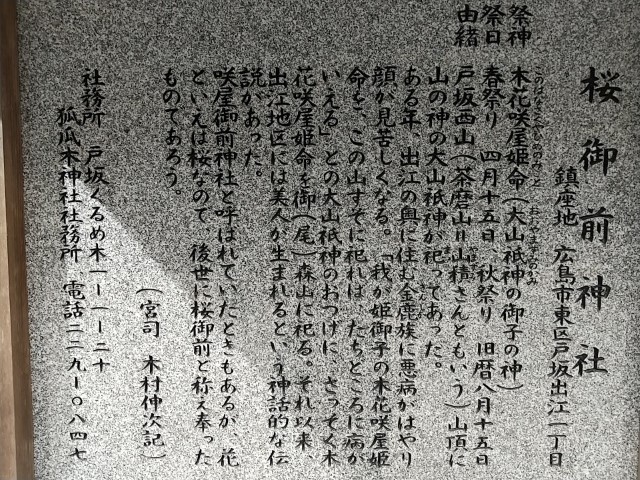 桜御前神社
鎮座地 広島市東区戸坂出江一丁目
祭神 木花咲屋姫命(大山祇神の御子の神)
このはなさくやひめのみこと おおやまずみのかみ
祭日 春祭り 四月十五日 秋祭り 旧暦八月十五日
由緒 戸坂西山(茶磨山リ山積さんともいう)山頂に
山の神の大山祇神が祀ってあった。
ある年、出江の奥に住む金鹿族に悪病がはやり
顔が見苦しくなる。「我が姫御子の木花咲屋姫
命を、この山すそに祀れば、たちどころに病が
いえる」との大山祇神のおつげに、さっそく木
花咲屋姫命を御(尾)森山に祀る。それ以来、
出江地区には美人が生まれるという神話的な伝
説があった。
咲屋御前神社と呼ばれていたときもあるが、花
といえば桜なので、後世に桜御前と称え奉った
ものであろう。
(宮司 木村伸次記)
社務所 戸坂くるめ木一ー一ー二十
狐瓜木神社社務所 電話二二九ー〇八四七